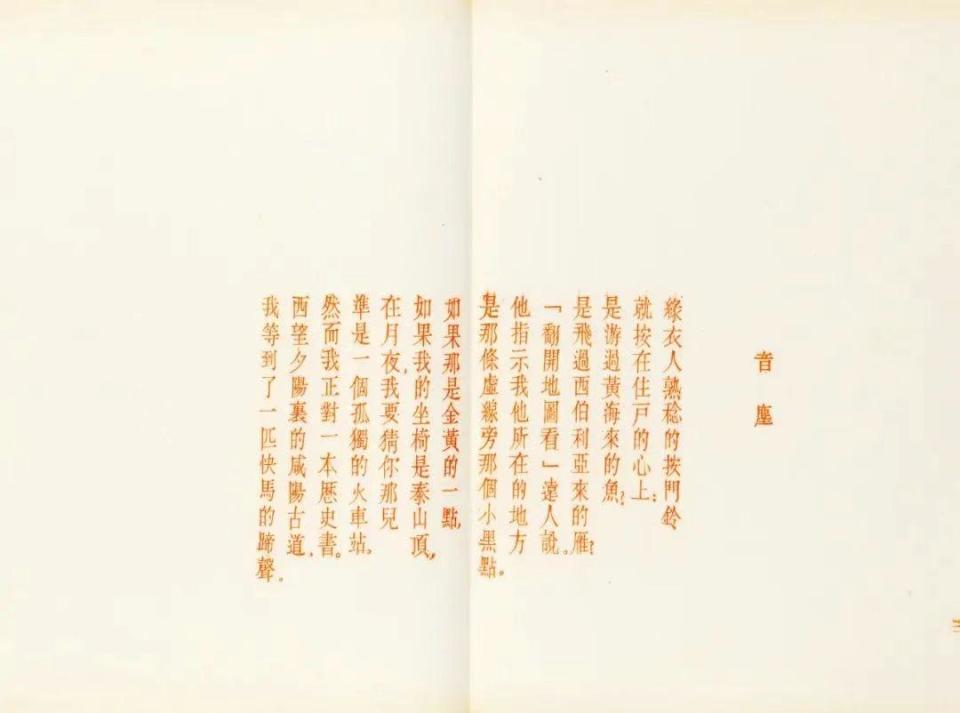 音塵
綠衣人熟稔的按門鈴
就按在住戶的心上：
是游過黃海來的魚？
是飛過西伯利亞來的雁？
「翻開地圖看」遠人說。
他指示我他所在的地方
是那條虛線旁那個小黑點。
如果那是金黃的一點，
如果我的坐椅是泰山頂，
在月夜，我要猜你那兒
準是一個孤獨的火車站。
然而我正對一本歷史書。
西望夕陽裏的咸陽古道，
我等到了一匹快馬的蹄聲。